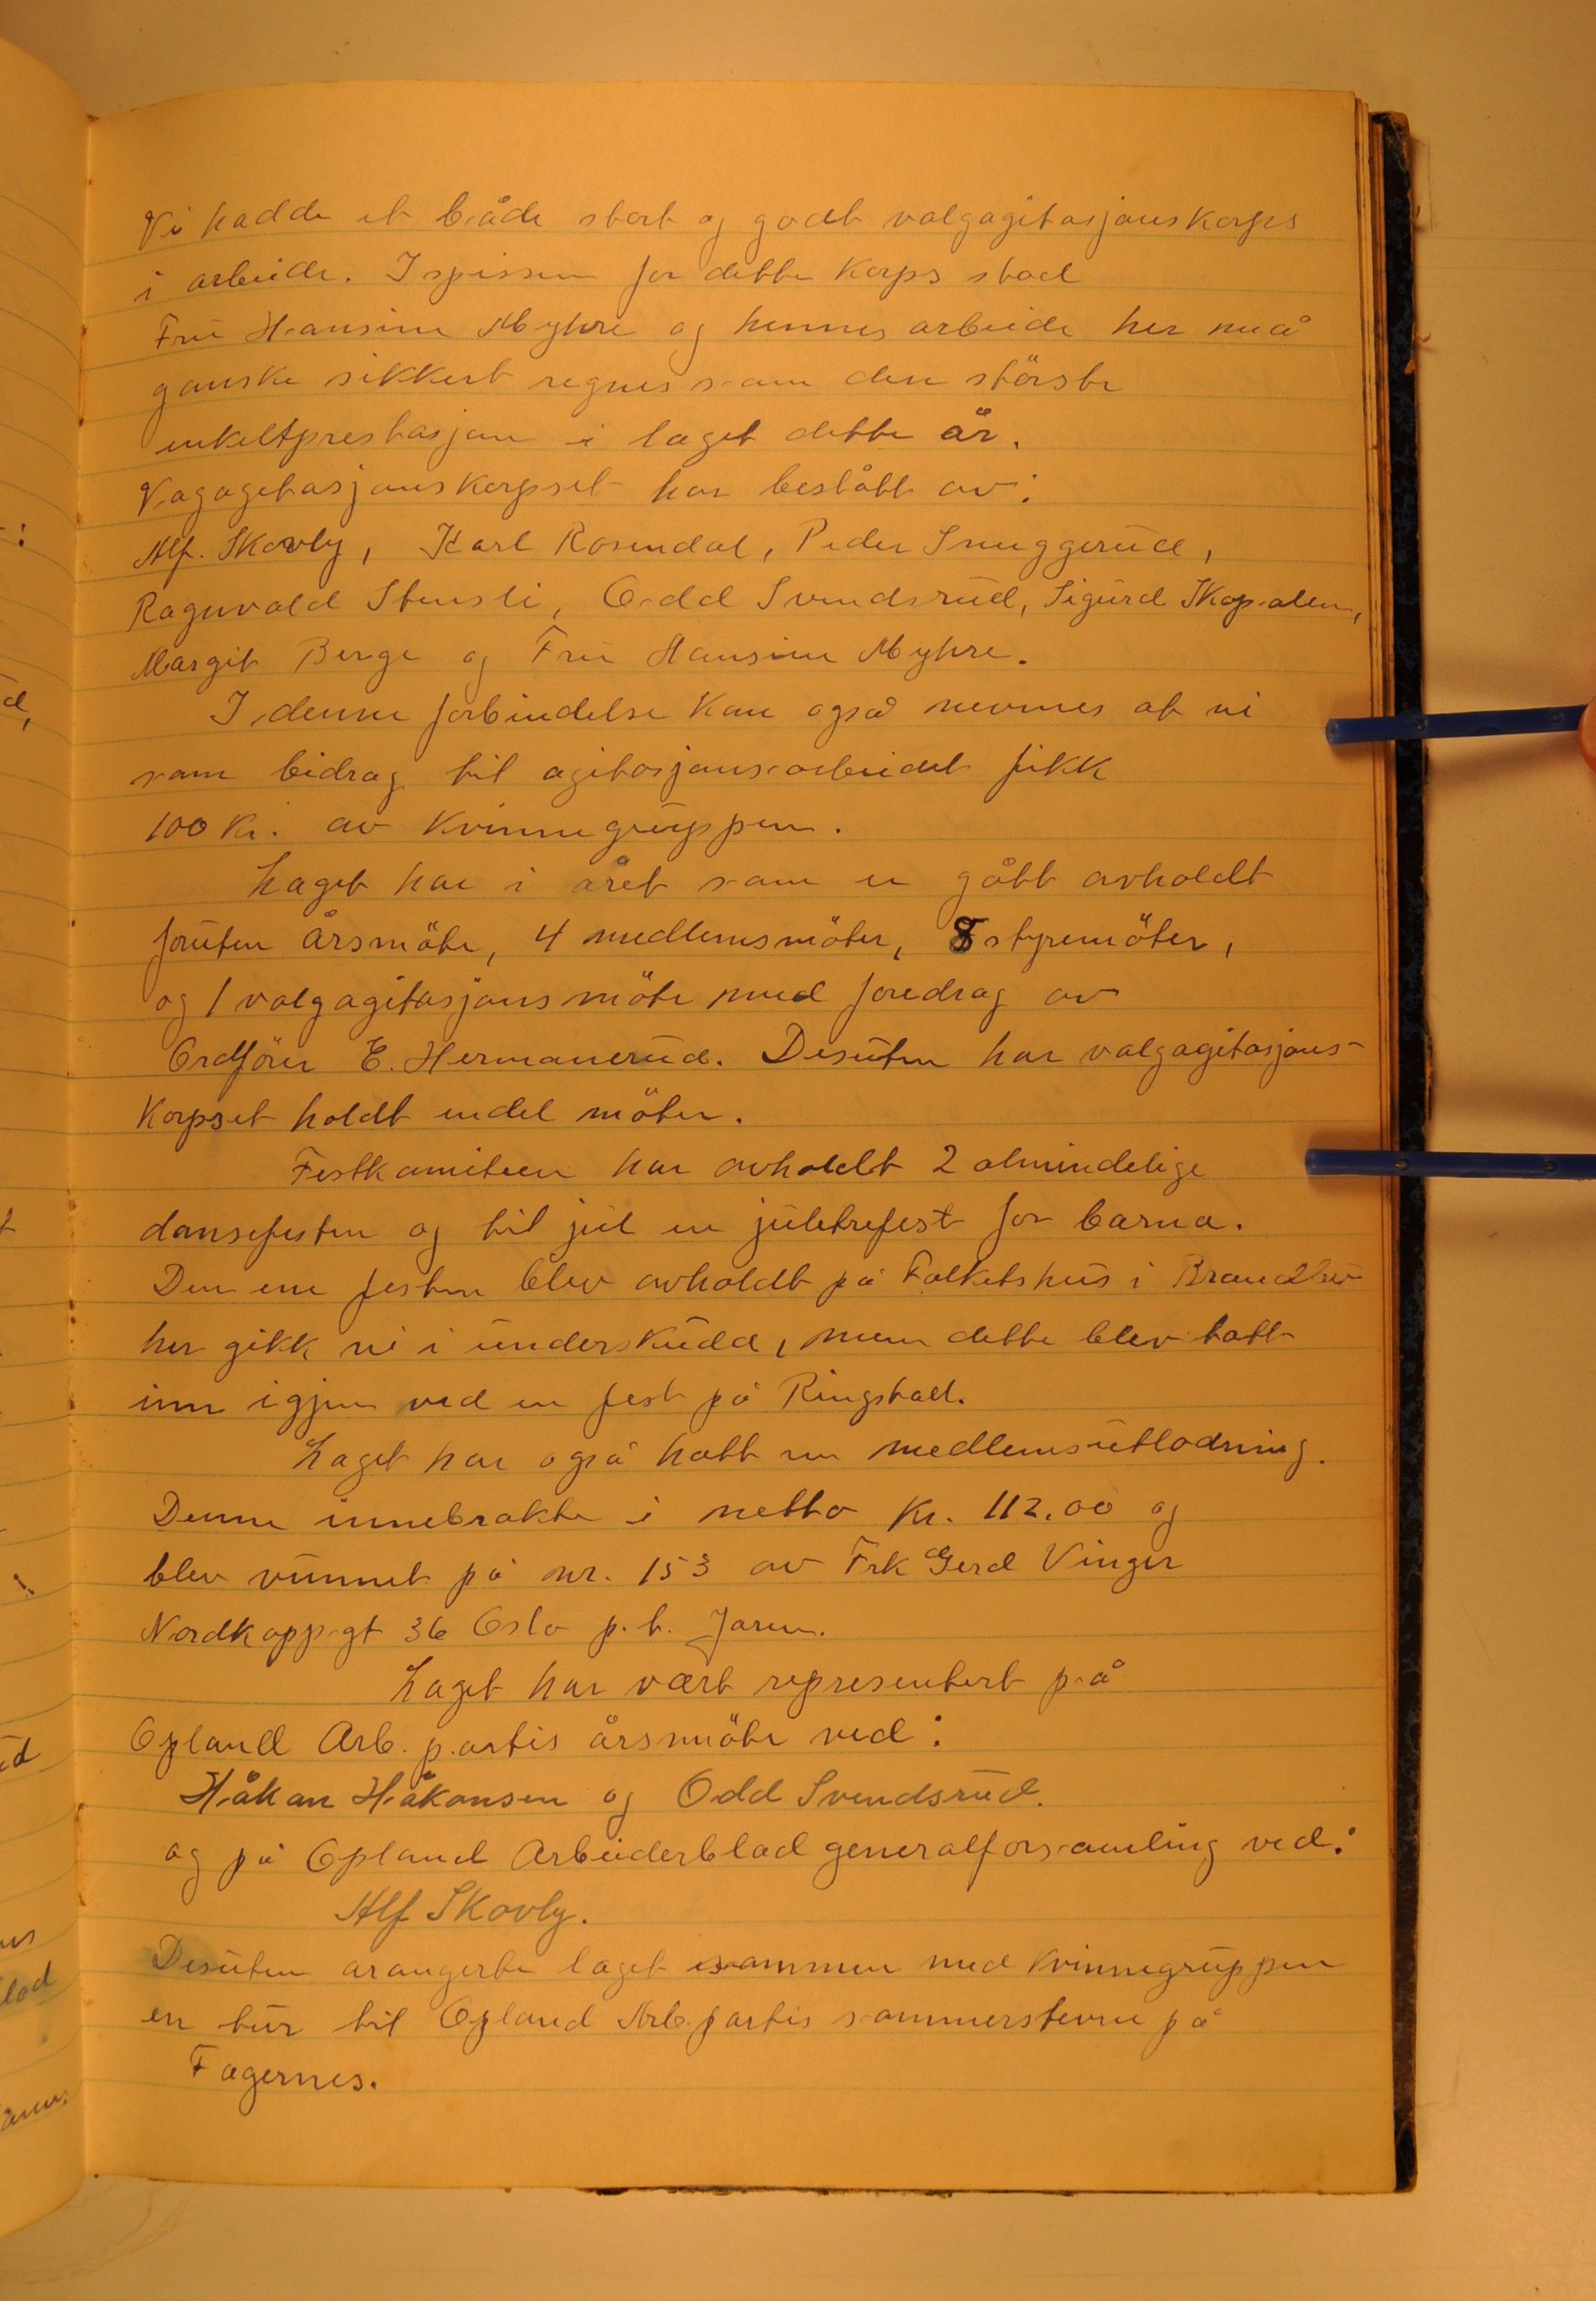 Vi hadde et både stort og godt valgagitasjonskorps
i arbeide. I spissen for dette korps stod
Fru Hansine Myhre og hennes arbeide her må
ganske sikkert regnes som den störste
enkeltprestasjon i laget dette år.
Vagagitasjonskorpset har bestått av:
Alf. Skovly, Karl Rosendal, Peder Snuggerud,
Ragnvald Stensli, Odd Svendsrud, Sigurd Skapalen,
Margit Berge og Fru Hansine Myhre.
I denne forbindelse kan også nevnes at vi
som bidrag til agitasjonsarbeidet fikk
100 kr. av kvinnegruppen.
Laget har i året som er gått avholdt
foruten årsmöte, 4 medlemsmöter, 8 styremöter,
og 1 valgagitasjonsmöte med foredrag av
Ordförer E. Hermanerud. Desuten har valgagitasjons-
korpset holdt endel möter.
Festkomiteen har avholdt 2 almindelige
dansefester og til jul en juletrefest for barna.
Den ene festen blev avholdt på Folketshus i Brandbu
her gikk vi i underskudd, men dette blev tatt
inn igjen ved en fest på Ringstad.
Laget har også hatt en medlemsutlodning.
Denne innebrakte i netto kr. 112.00 og
blev vunnet på nr. 153 av Frk Gerd Vinger
Nordkappgt 36 Oslo p.t. Jaren.
Laget har vært representert på
Opland Arb. partis årsmöte ved:
Håkon Håkonsen og Odd Svendsrud.
og på Opland Arbeiderblad generalforsamling ved:
Alf Skovly.
Desuten arangerte laget sammen med kvinnegruppen
en tur til Opland Arb. partis sommerstevne på
Fagernes.